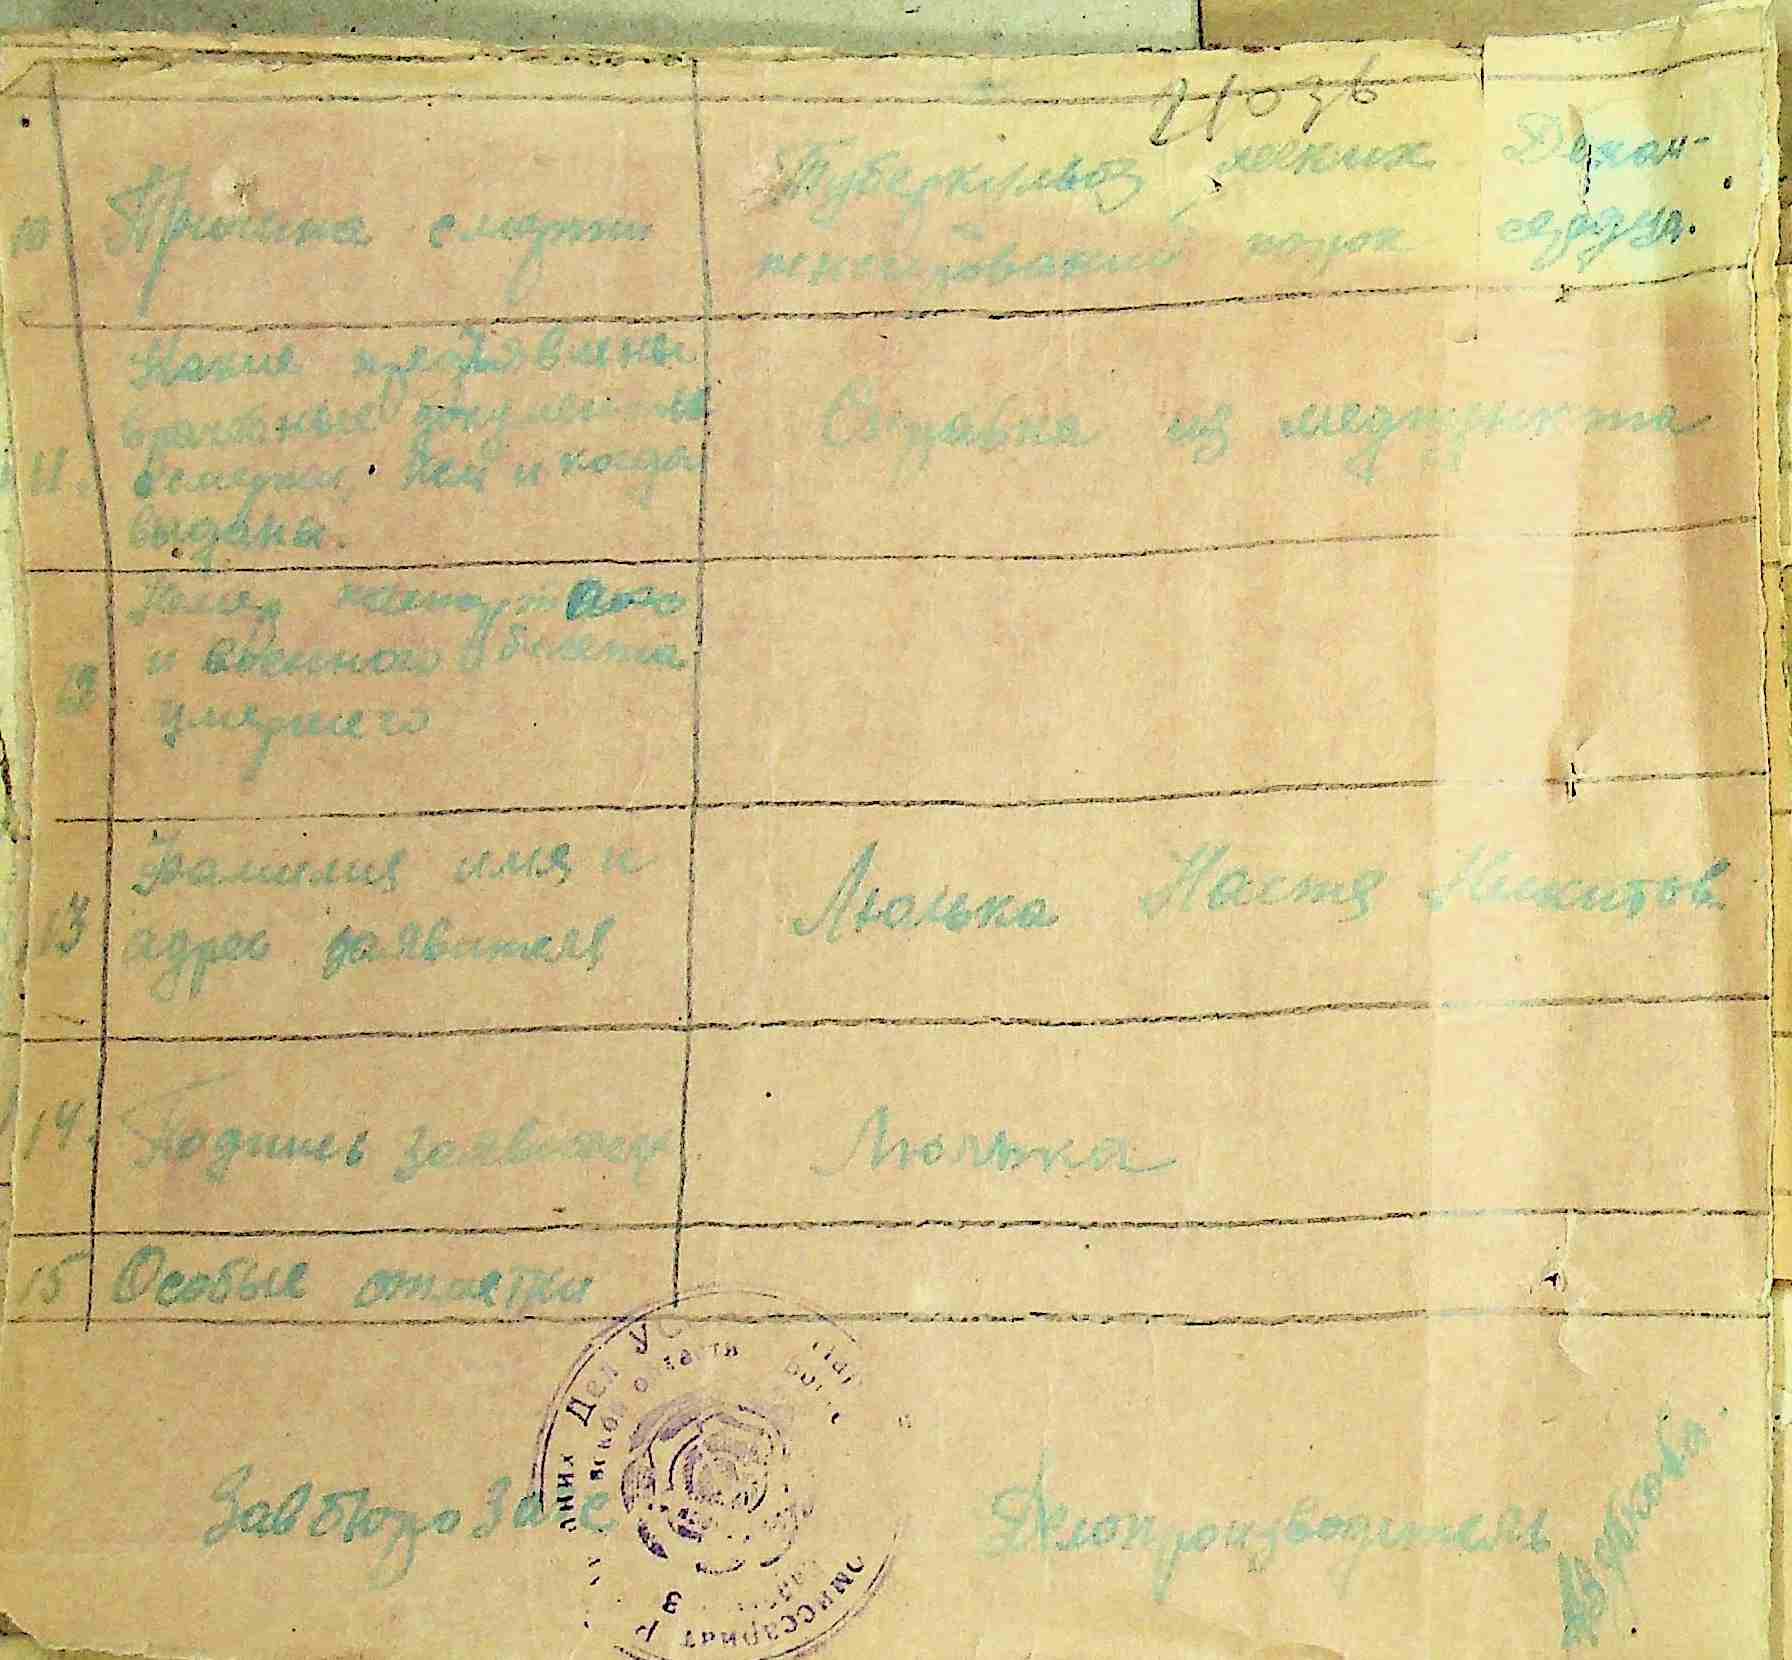 21036
10 Причина смерти
Туберкулёз легких Декам-
порок сердца.
11. Какие предъявлены
врачебные документы
о смерти, кем и когда
выданы.
Справка из медпункта
паспорта
и военного билета
умершего
13 Фамилия имя и
адрес заявителя
Люлька Настя Никитов
14. Подпись заявителя
Люлька
15 Особые отметки
Завбюро Загс
Делопроизводитель